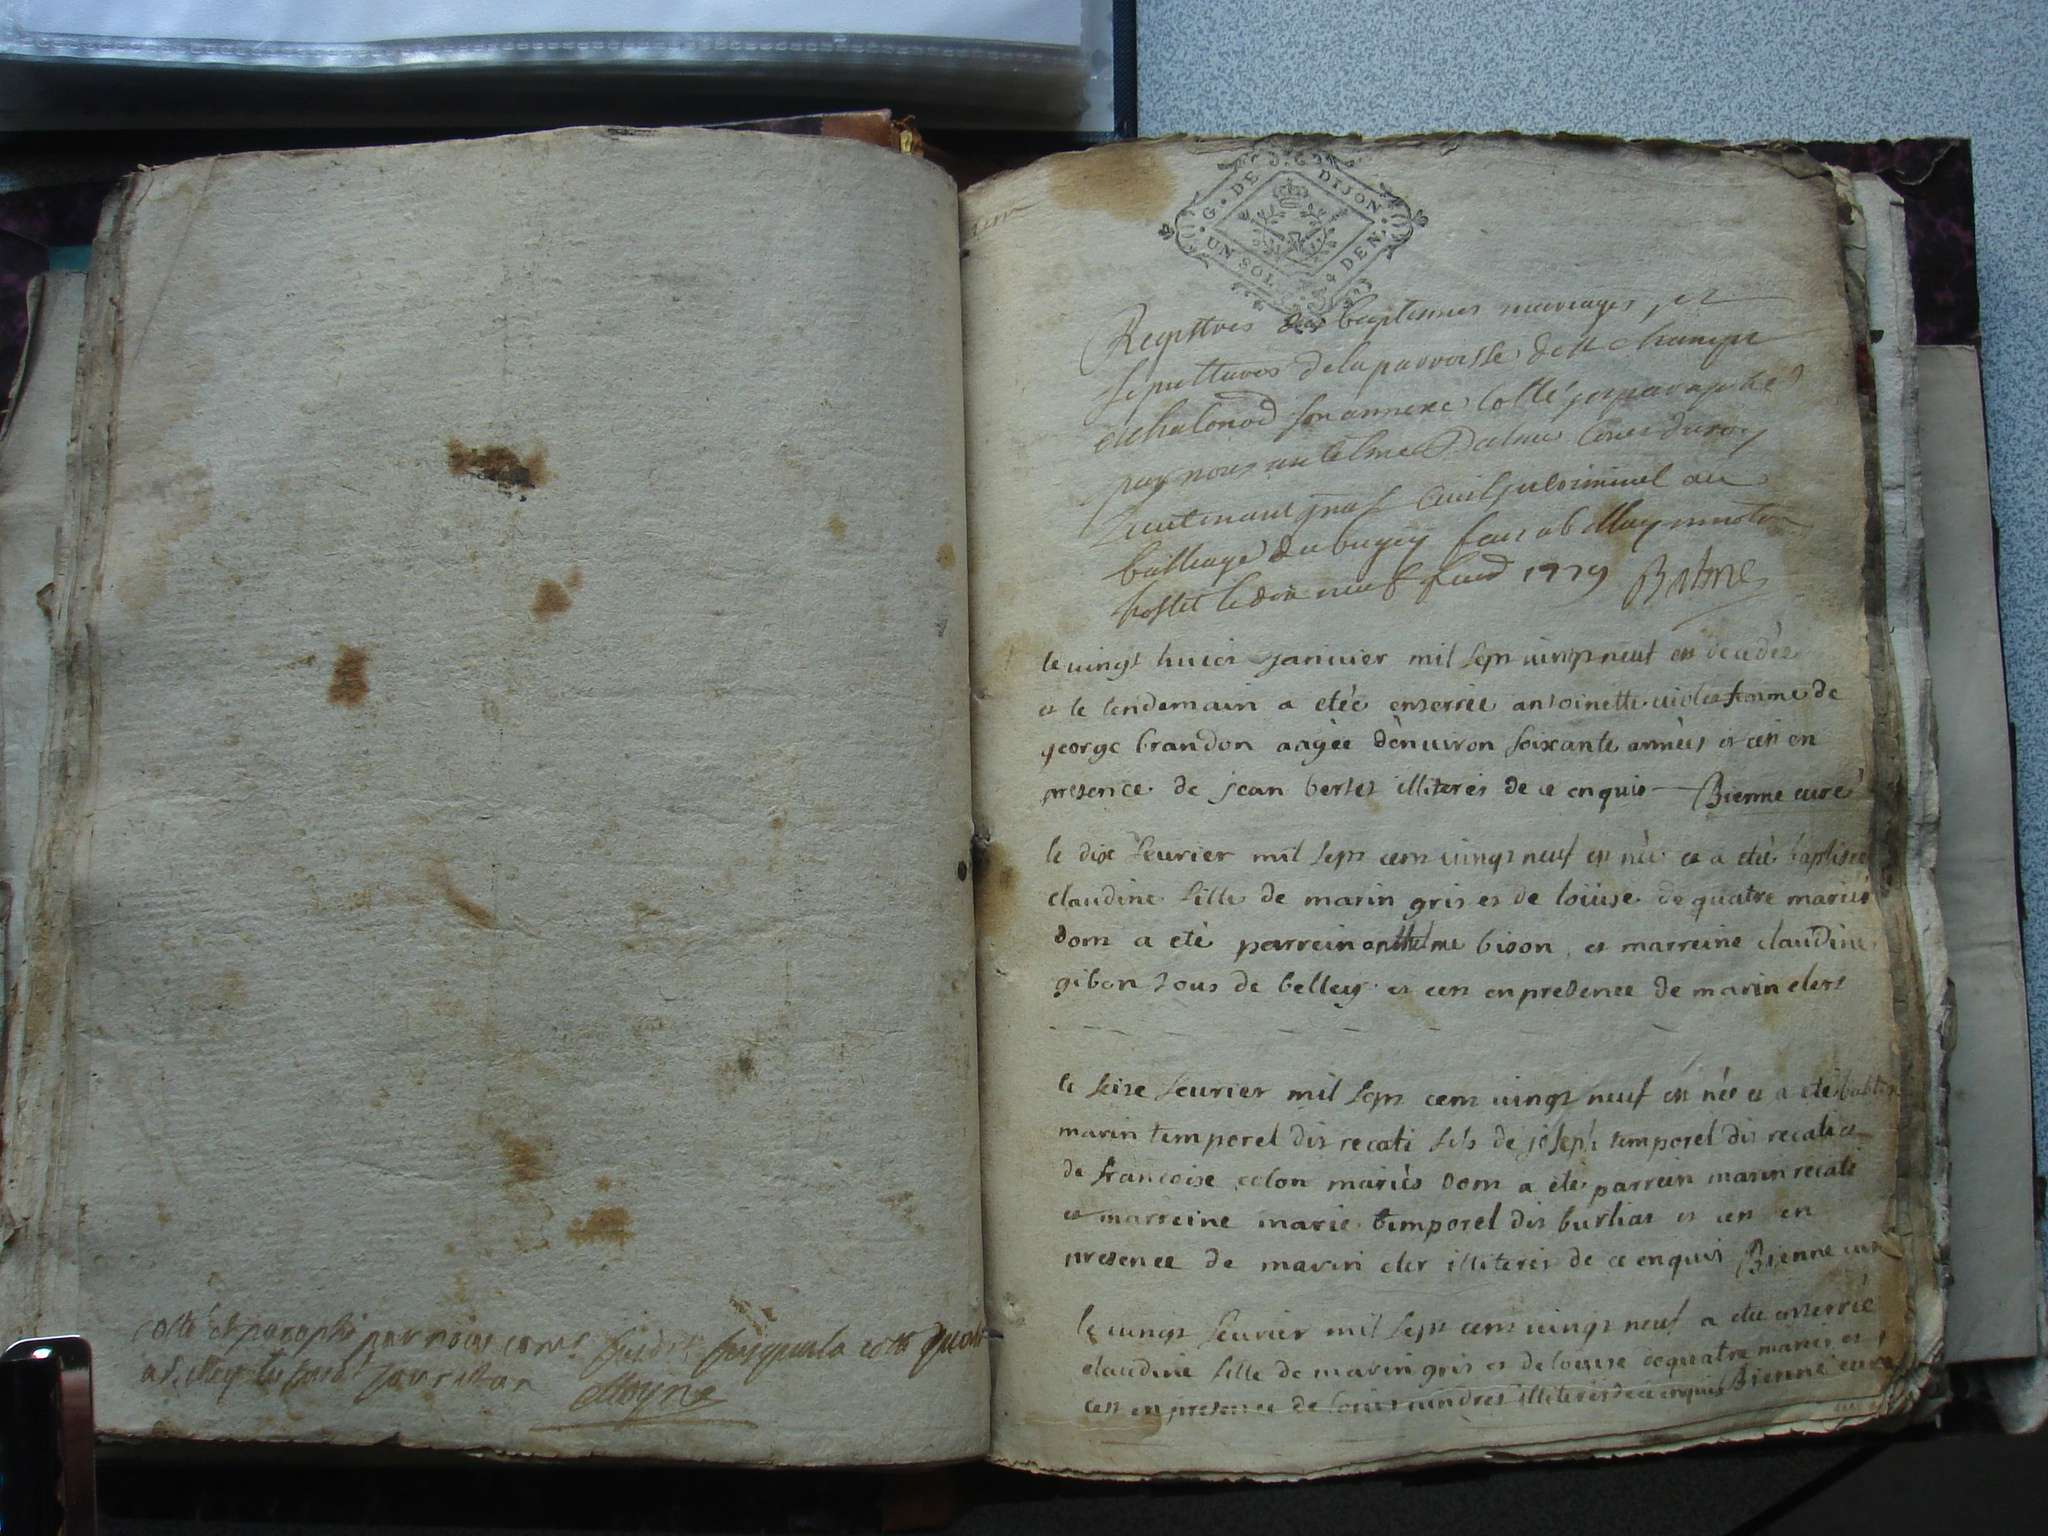 cotté et paraphé par nous
Moyne
G. DE DIJON
UN SOL 4 DEN
Registres des baptesmes mariages et
sepultures de la parroisse de st champt
et chatonod son annexe cotté et paraphé
par nous antelme Balme Coner du roy
Lieutenant gnal Civil et criminel au
bailliage du bugey
le dix neuf 1729 Balme
le vingt huict janvier mil sept vingt neuf est decedée
et le lendemain a etée enterrée antoinette femme de
george brandon aagée d'environ soixante années et cest en
presence de jean bertet illiterés de ce enquis Bienne curé
le dix feurier mil sept cent vingt neuf est née et a eté baptisée
claudine fille de marin gris et de louise de quatre mariés
dont a eté parrein anthelme bison et marreine claudine
gibon tous de belley et cest en presence de marin clert
le seise feurier mil sept cent vingt neuf est née et a eté babtisé
marin temporel dit recati fils de joseph temporel dit recati et
de francoise colon mariés dont a eté parrein marin recati
et marreine marie temporel dit burliat et cest en
presence de marin cler illiterés de ce enquis Bienne curé
le vingt feurier mil sept cent vingt neuf a eté enterrée
claudine fille de marin gris et de louise de quatre mariés et
cest en presence de louis vindret illiterés de ce enquis Bienne curé